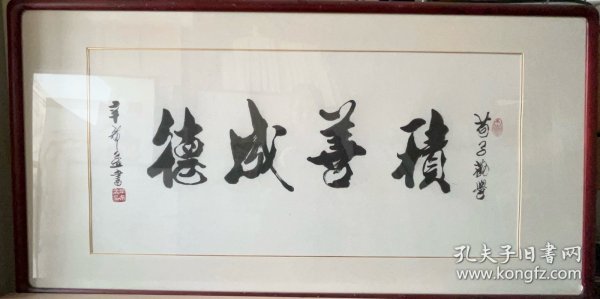 荀子劝学
積善成德
書
孔夫子旧书网
www.kongfz.com